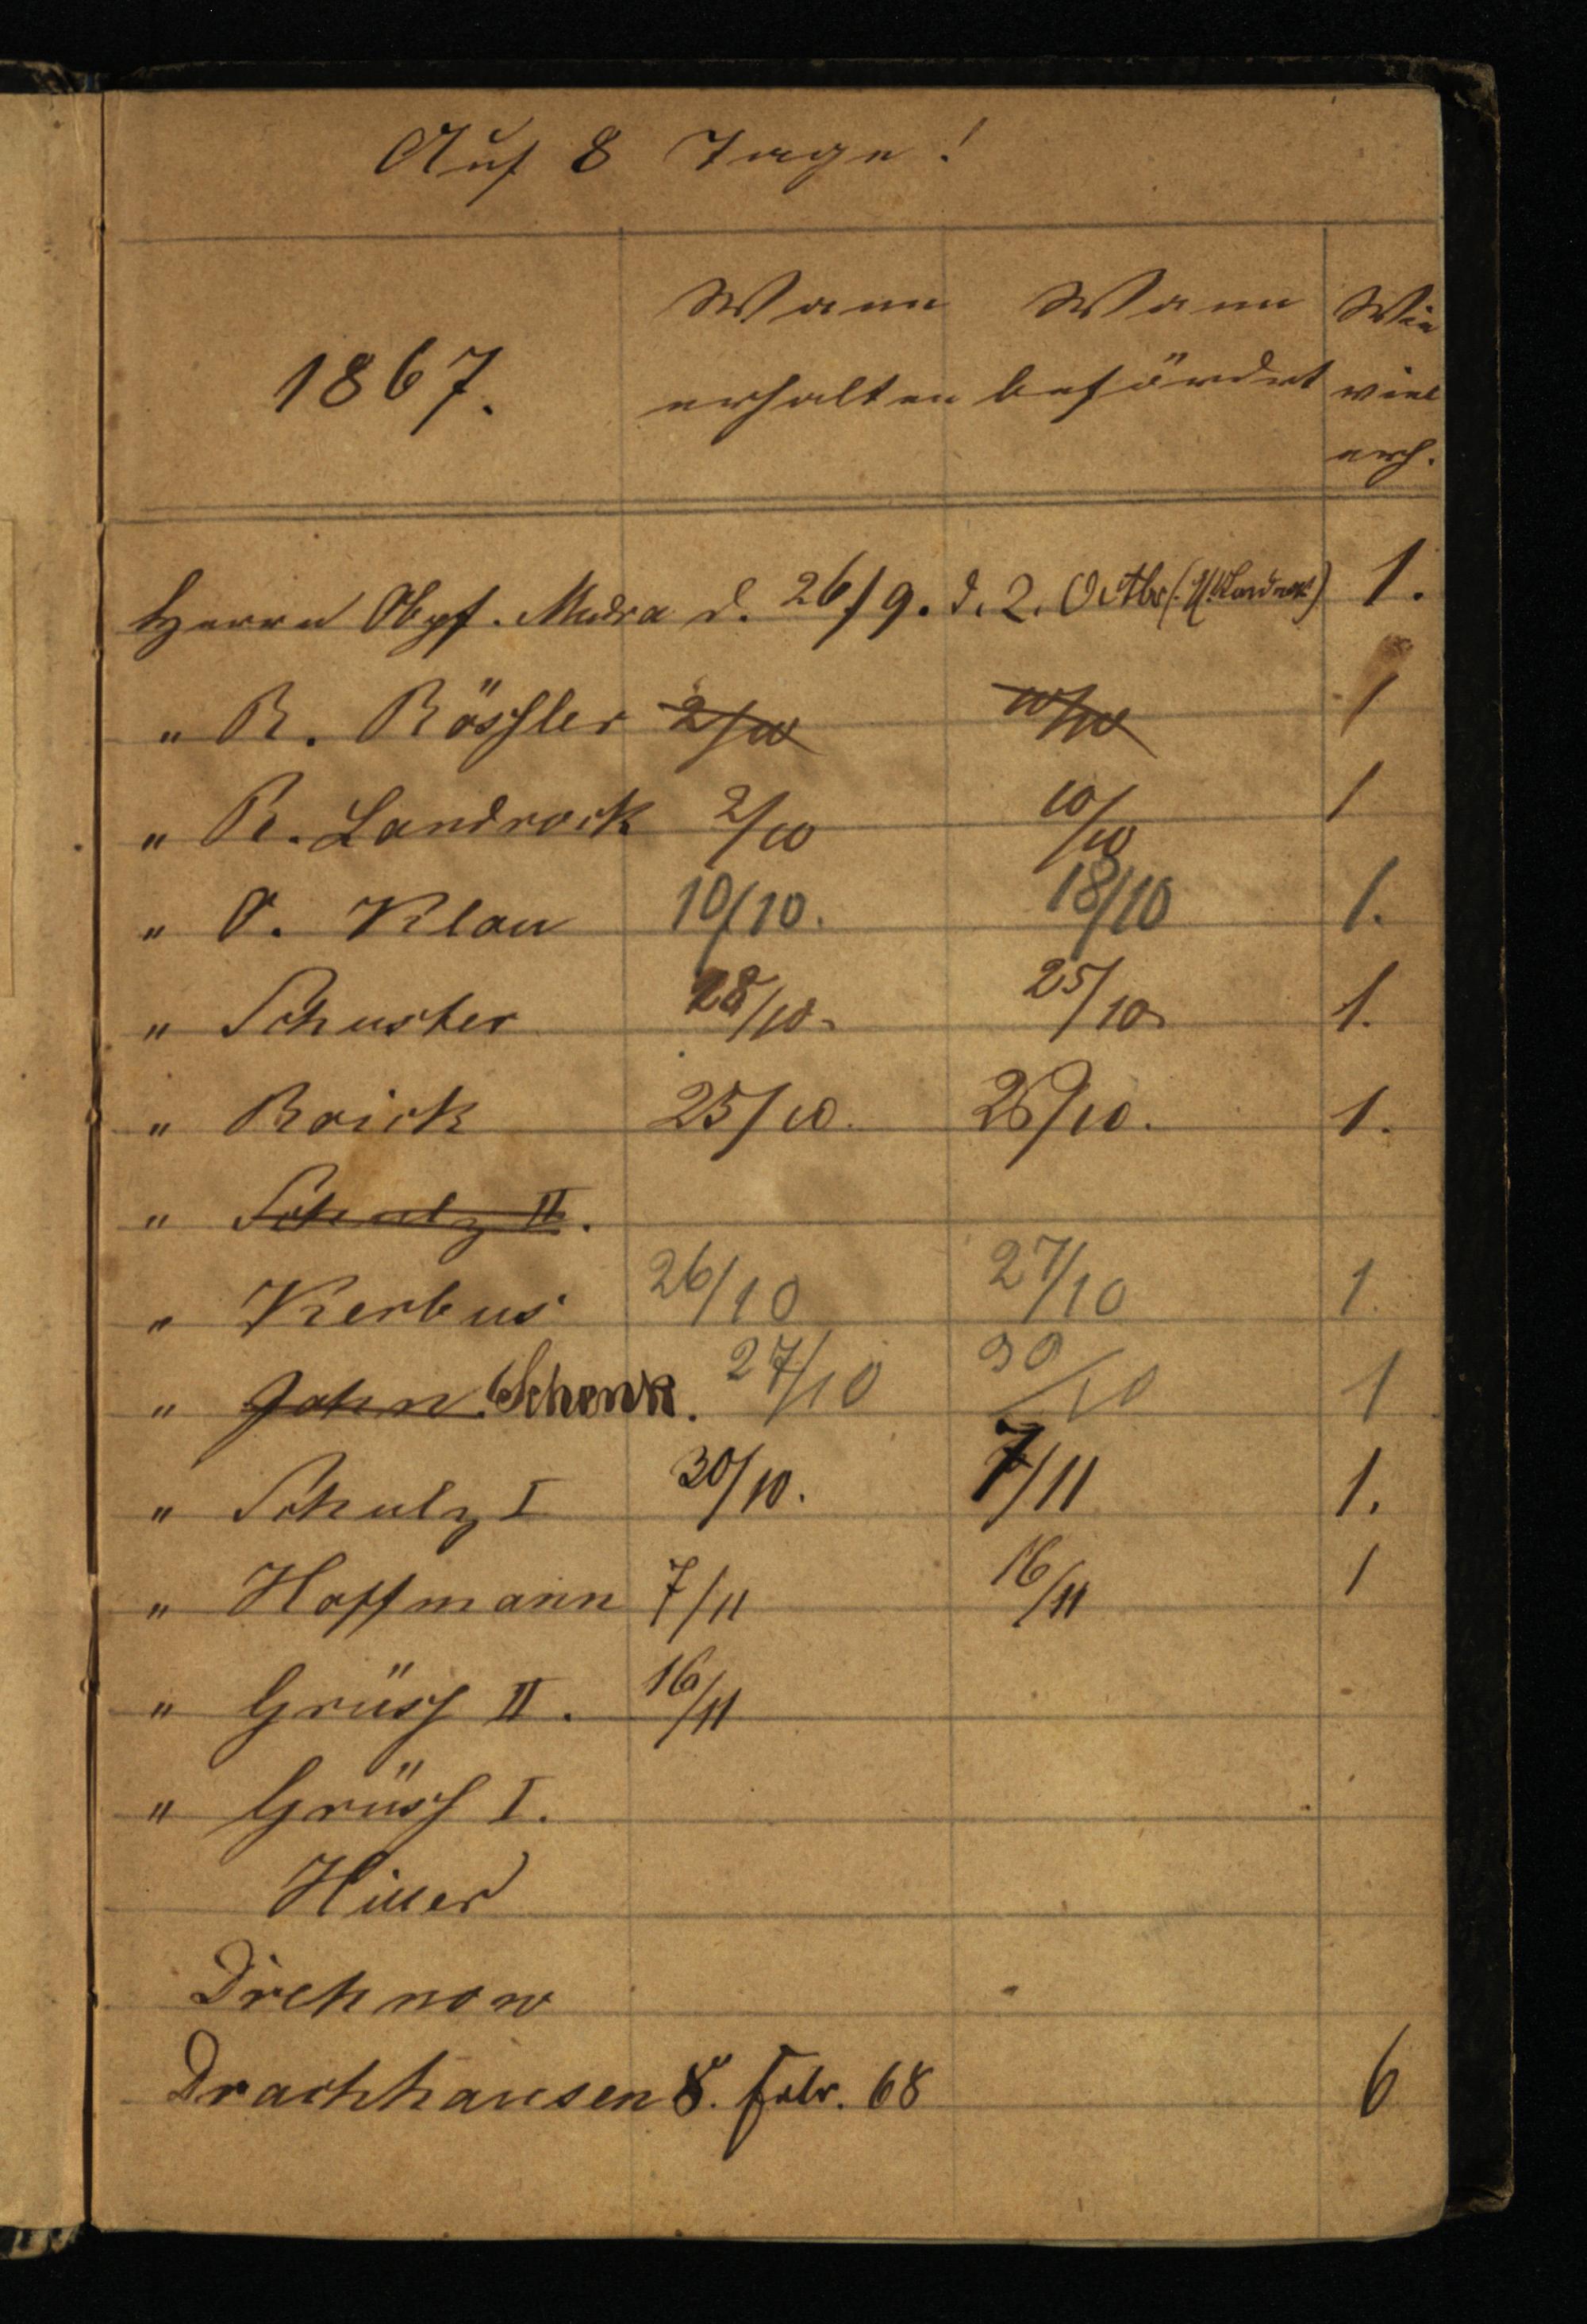 Auf 8 Tage!
1867. Wann erhalten Wann befördert Wie viel erh.
Herrn Obpf. Madra d. 26/9. d. 2. Octbr 1.
" R. Rössler 2/10 10/10 1
" R. Landrock 2/10 10/10 1
" O. Klau 10/10. 18/10 1.
" Schuster 18/10. 25/10. 1.
" Brick 25/10. 26/10. 1.
" Schulz II.
" Kerbus 26/10 27/10 1.
" John. Schenk. 27/10 30/10 1
" Schulz I 30/10. 7/11 1.
" Hoffmann 7/11 16/11 1
" Grüss II. 16/11
" Grüss I.
Hiller
Drehnow
Drachhausen 8. Febr. 68 6